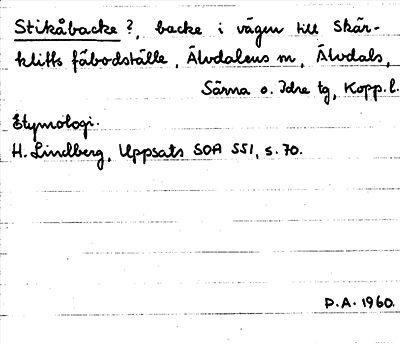 Stikåbacke ?, backe i vägen till Skär-
klitts fäbodställe, Älvdalens m, Älvdals,
Särna o. Idre tg, Kopp. l.
Etymologi.
H. Lindberg, Uppsats SOA 551, s. 70.
D.A. 1960.